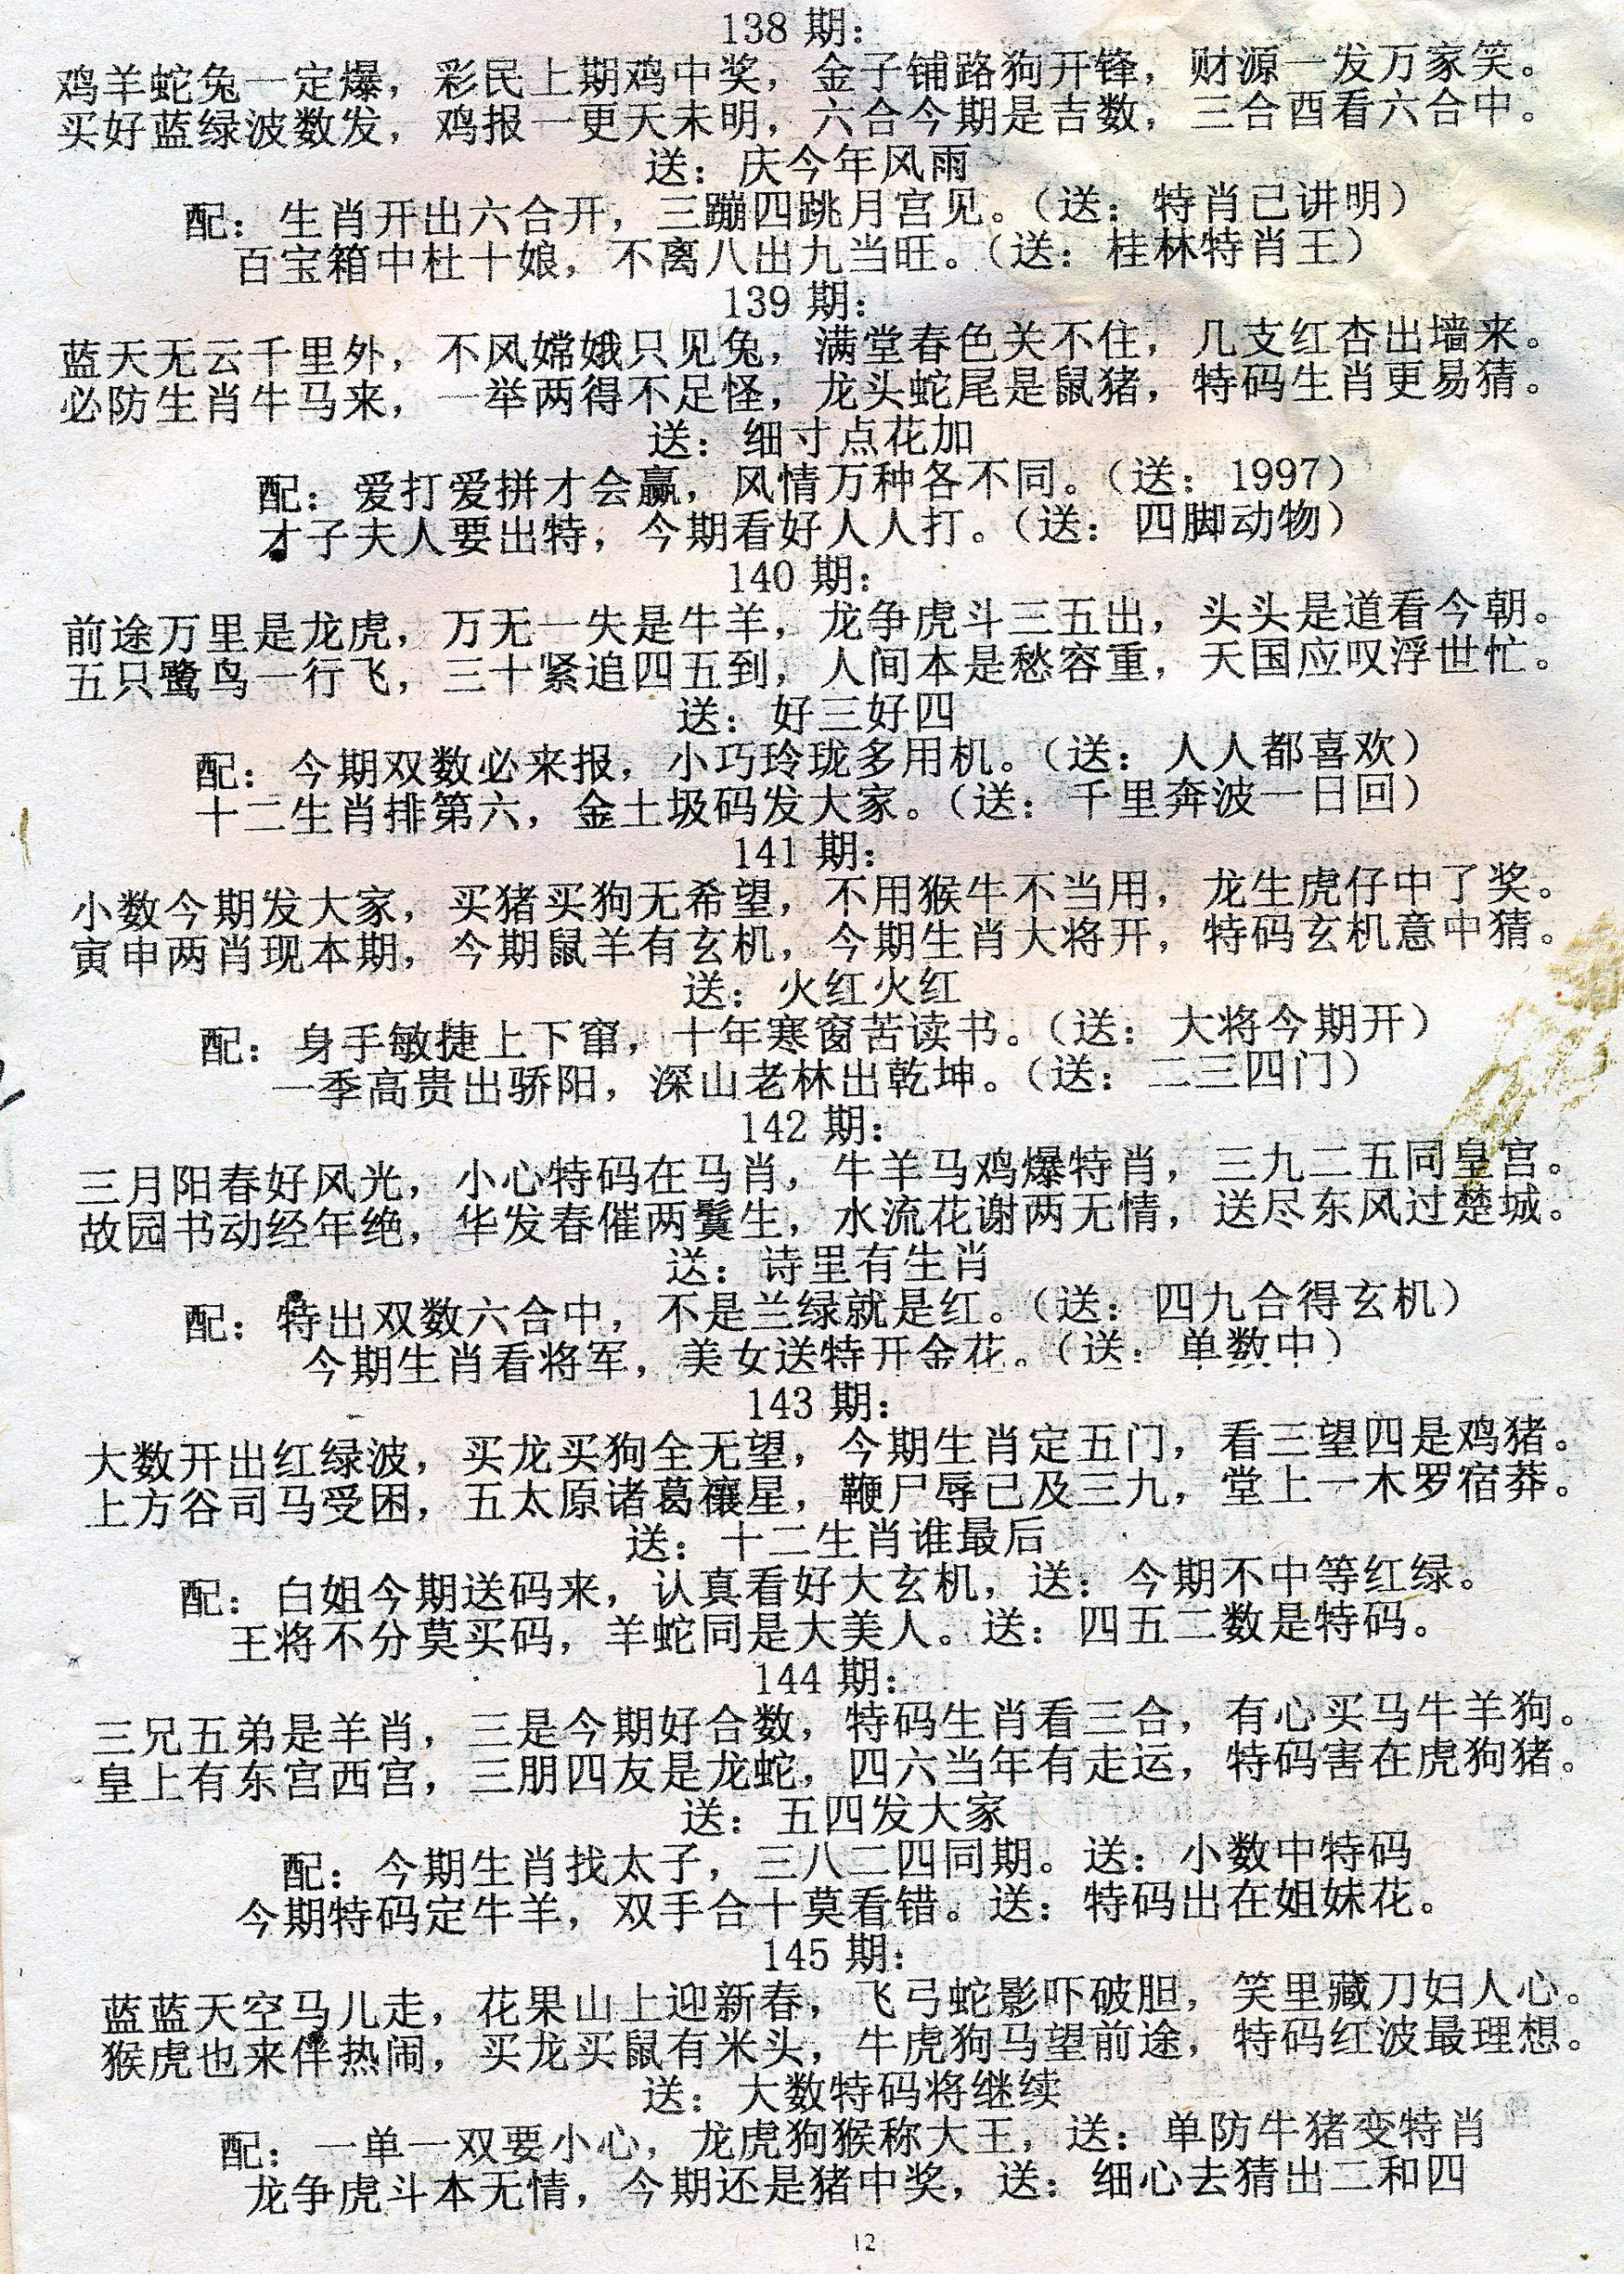 138 期:
鸡羊蛇兔一定爆，彩民上期鸡中奖，金子铺路狗开锋，财源一发万家笑。
买好蓝绿波数发，鸡报一更天未明，六合今期是吉数，三合酉看六合中。
送：庆今年风雨
配：生肖开出六合开，三蹦四跳月宫见。（送：特肖已讲明）
百宝箱中杜十娘，不离八出九当旺。（送：桂林特肖王）
139 期:
蓝天无云千里外，不风嫦娥只见兔，满堂春色关不住，几支红杏出墙来。
必防生肖牛马来，一举两得不足怪，龙头蛇尾是鼠猪，特码生肖更易猜。
送：细寸点花加
配：爱打爱拼才会赢，风情万种各不同。（送：1997）
才子夫人要出特，今期看好人人打。（送：四脚动物）
140 期:
前途万里是龙虎，万无一失是牛羊，龙争虎斗三五出，头头是道看今朝。
五只鹭鸟一行飞，三十紧追四五到，人间本是愁容重，天国应叹浮世忙。
送：好三好四
配：今期双数必来报，小巧玲珑多用机。（送：人人都喜欢）
十二生肖排第六，金土圾码发大家。（送：千里奔波一日回）
141 期:
小数今期发大家，买猪买狗无希望，不用猴牛不当用，龙生虎仔中了奖。
寅申两肖现本期，今期鼠羊有玄机，今期生肖大将开，特码玄机意中猜。
送：火红火红
配：身手敏捷上下窜，十年寒窗苦读书。（送：大将今期开）
一季高贵出骄阳，深山老林出乾坤。（送：二三四门）
142 期:
三月阳春好风光，小心特码在马肖，牛羊马鸡爆特肖，三九二五同皇宫。
故园书动经年绝，华发春催两鬓生，水流花谢两无情，送尽东风过楚城。
送：诗里有生肖
配：特出双数六合中，不是兰绿就是红。（送：四九合得玄机）
今期生肖看将军，美女送特开金花。（送：单数中）
143 期:
大数开出红绿波，买龙买狗全无望，今期生肖定五门，看三望四是鸡猪。
上方谷司马受困，五太原诸葛禳星，鞭尸辱已及三九，堂上一木罗宿莽。
送：十二生肖谁最后
配：白姐今期送码来，认真看好大玄机，送：今期不中等红绿。
王将不分莫买码，羊蛇同是大美人。送：四五二数是特码。
144 期:
三兄五弟是羊肖，三是今期好合数，特码生肖看三合，有心买马牛羊狗。
皇上有东宫西宫，三朋四友是龙蛇，四六当年有走运，特码害在虎狗猪。
送：五四发大家
配：今期生肖找太子，三八二四同期。送：小数中特码
今期特码定牛羊，双手合十莫看错。送：特码出在姐妹花。
145 期:
蓝蓝天空马儿走，花果山上迎新春，飞弓蛇影吓破胆，笑里藏刀妇人心。
猴虎也来伴热闹，买龙买鼠有米头，牛虎狗马望前途，特码红波最理想。
送：大数特码将继续
配：一单一双要小心，龙虎狗猴称大王，送：单防牛猪变特肖
龙争虎斗本无情，今期还是猪中奖，送：细心去猜出二和四
12